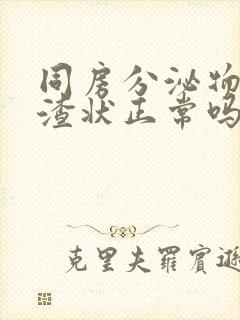 同房分泌物
渣状正常吗
克里夫羅賓遜